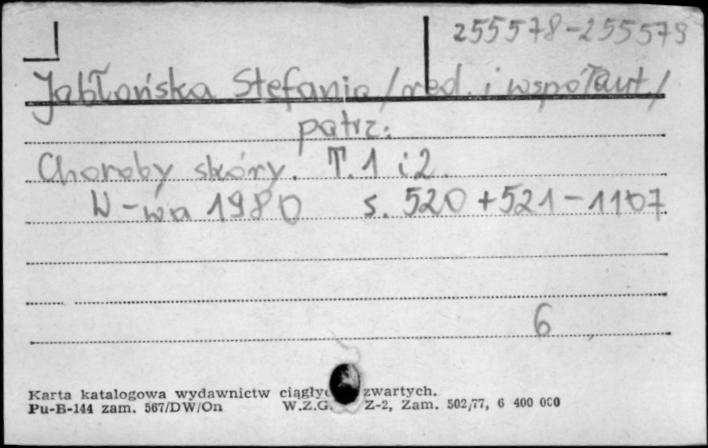 255578-255579
Jabłońska Stefania /red. i współaut/
patrz:
Choroby skóry. T.1 i 2.
W-wa 1980 s. 520 + 521-1107
6
Karta katalogowa wydawnictw zwartych.
Pu-B-144 zam. 567/DW/On W.Z.G. Z-2, Zam. 502/77, 6 400 000